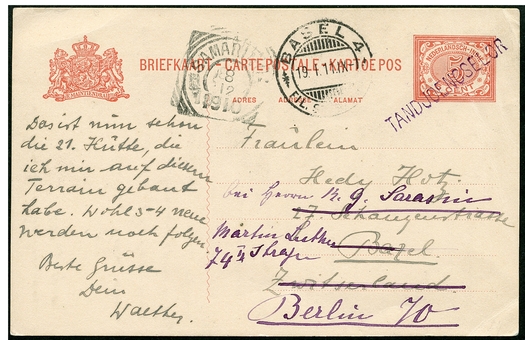 BRIEFKAART-CARTEPOSTALE-KARTOEPOS
ADRES ADRESSE ALAMAT
NEDERLANDSCH-INDIË
5
CENT
BASEL 4
19.1.14.
TANDJOENGSELOR
Das ist nun schon
die 21. Hütte, die
ich mir auf diesem
Terrain gebaut
habe. Wohl 3-4 neue
werden noch folgen.
Beste Grüsse
Dein
Walther.
Fräulein
Hedy Hotz
bei Herrn Dr. G. Sarasin
17 Schanzenstrasse
Martin Luther
74 II Strasse
Basel
Zwitserland
Berlin